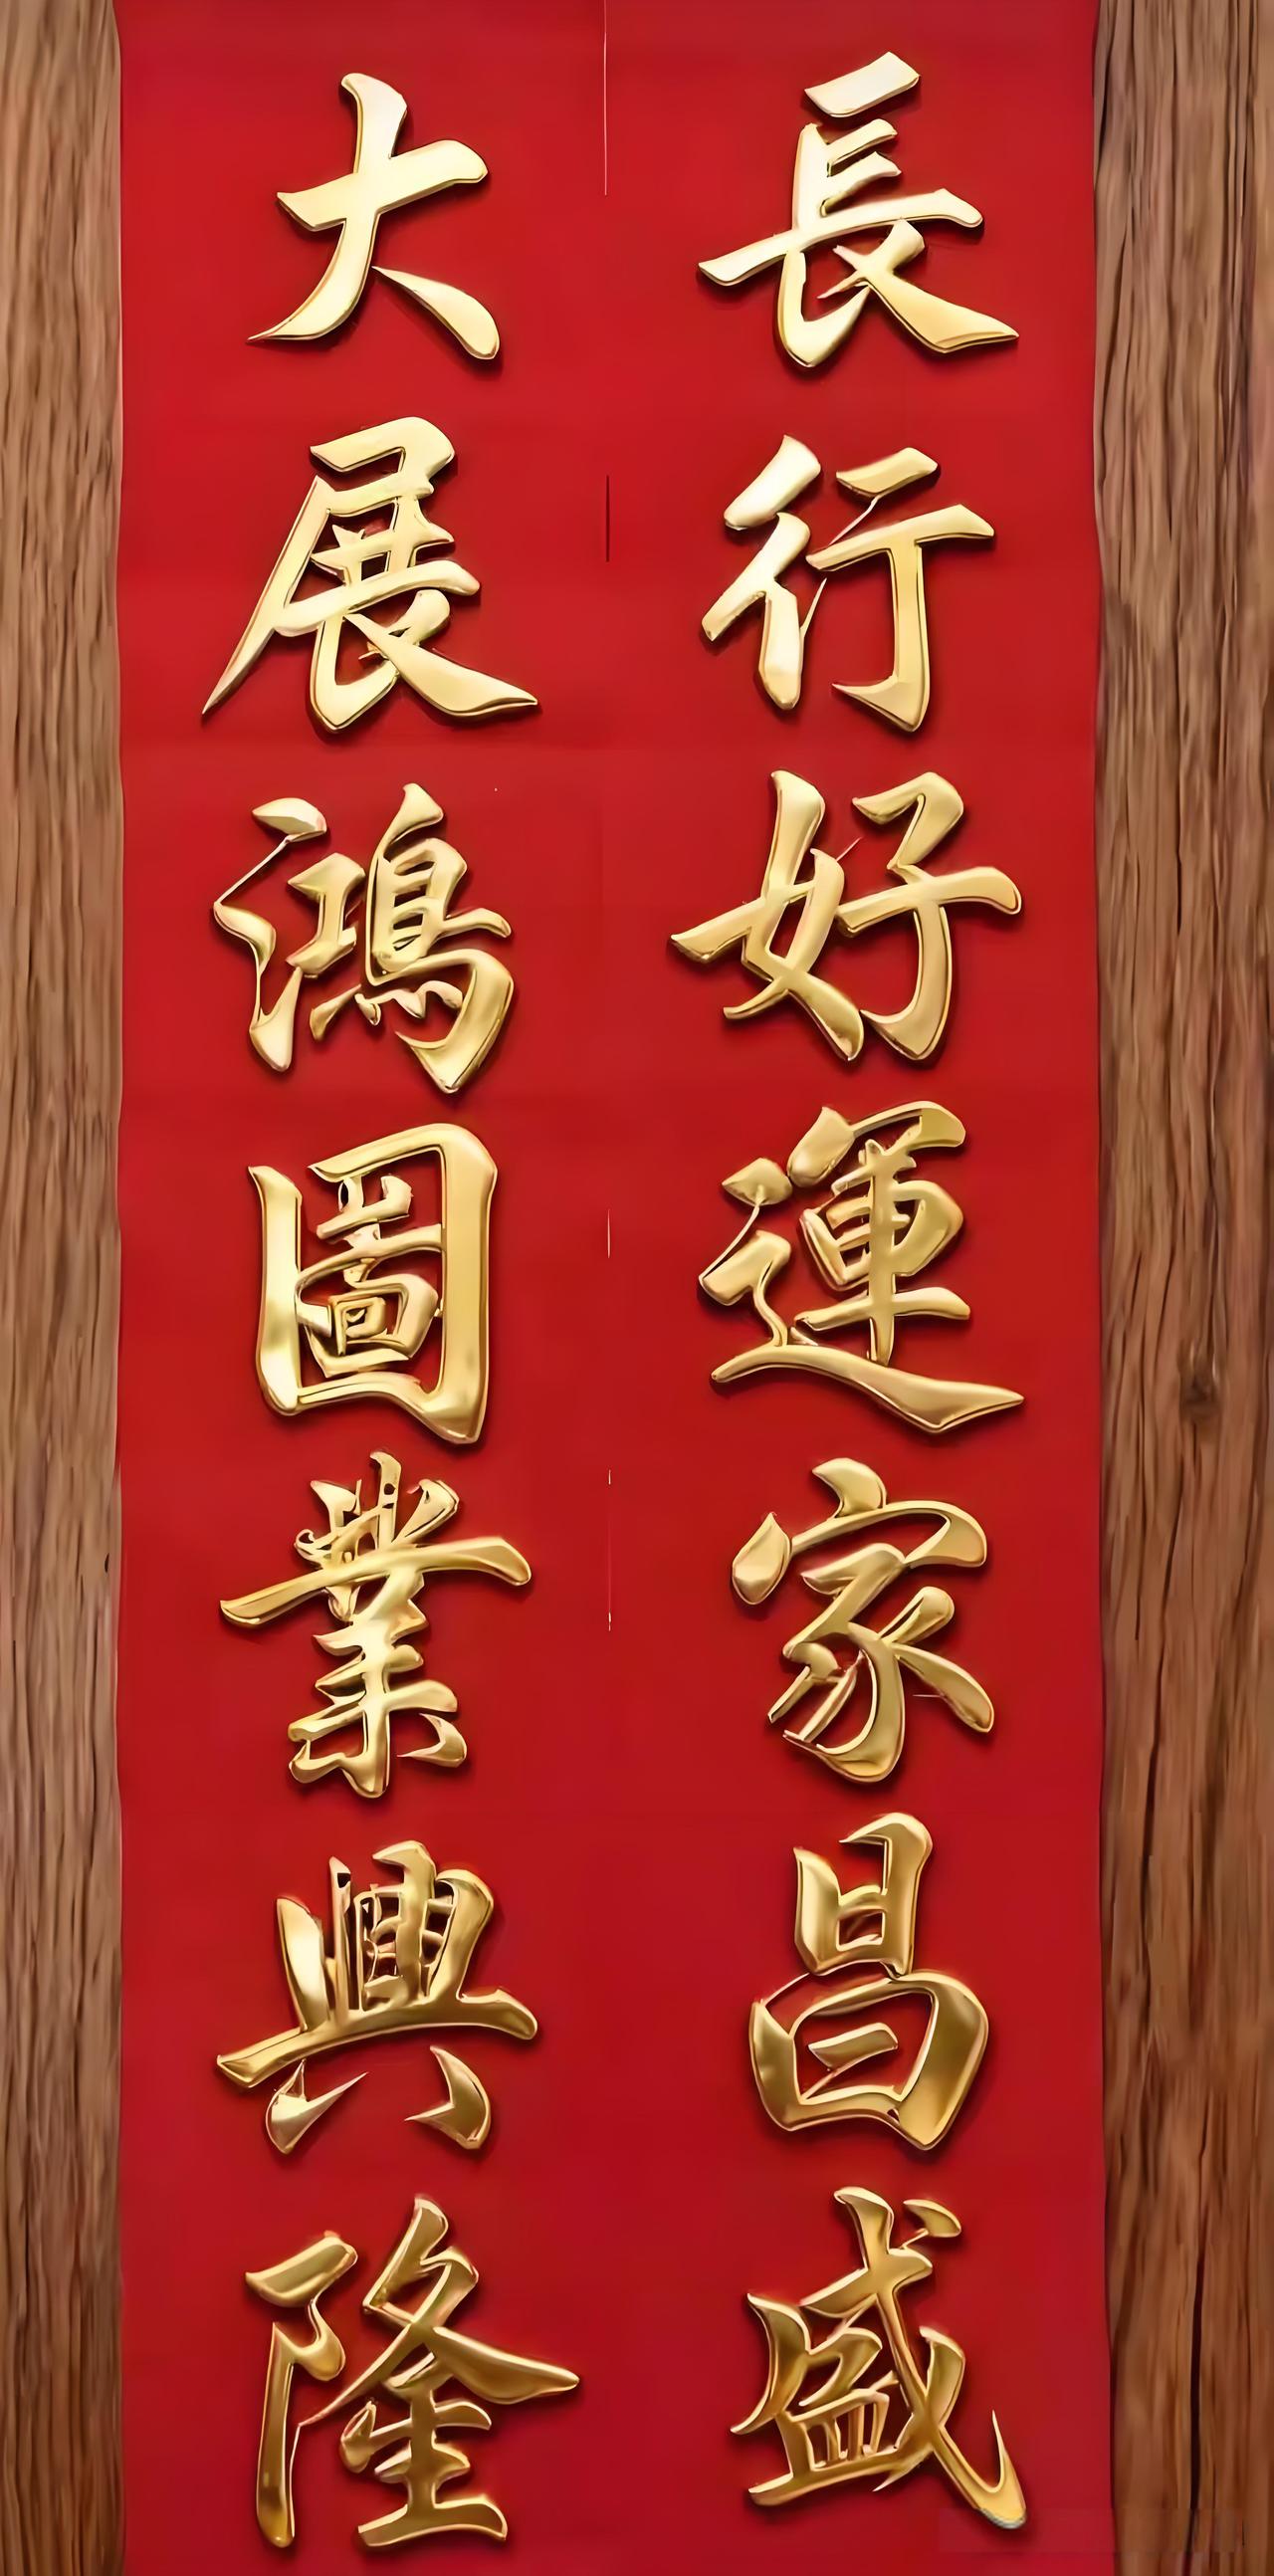 長行好運家昌盛
大展鴻圖業興隆